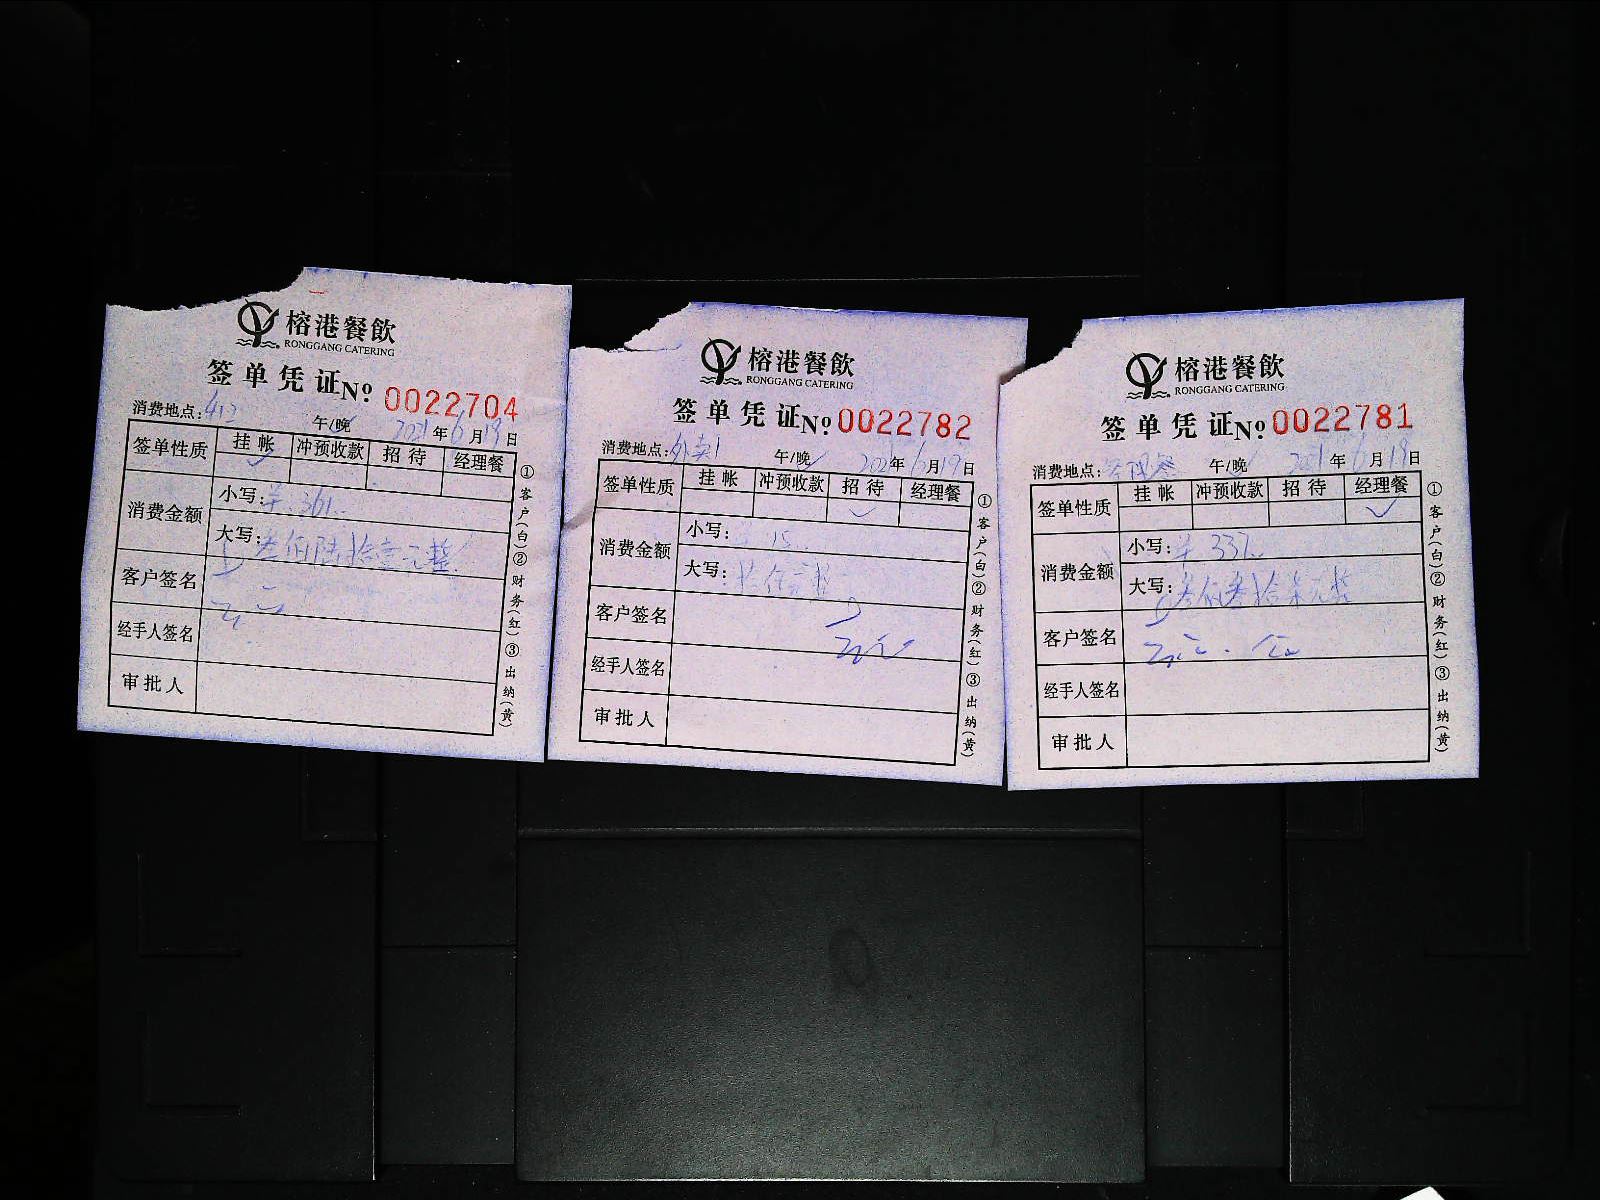 榕港餐飲
RONGGANG CATERING
签单凭证№ 0022704
消费地点: 412 午/晚 2021年6月19日
签单性质 挂帐 冲预收款 招待 经理餐
消费金额
小写: 361
大写: 叁佰陆拾壹元整
客户签名
经手人签名
审批人
①客户(白)②财务(红)③出纳(黄)
榕港餐飲
RONGGANG CATERING
签单凭证№ 0022782
消费地点: 外卖1 午/晚 2021年6月19日
签单性质 挂帐 冲预收款 招待 经理餐
消费金额
小写: 15
大写: 拾伍元整
客户签名
经手人签名
审批人
①客户(白)②财务(红)③出纳(黄)
榕港餐飲
RONGGANG CATERING
签单凭证№ 0022781
消费地点: 午/晚 2021年6月19日
签单性质 挂帐 冲预收款 招待 经理餐
消费金额
小写: 337
大写: 叁佰叁拾柒元整
客户签名
经手人签名
审批人
①客户(白)②财务(红)③出纳(黄)